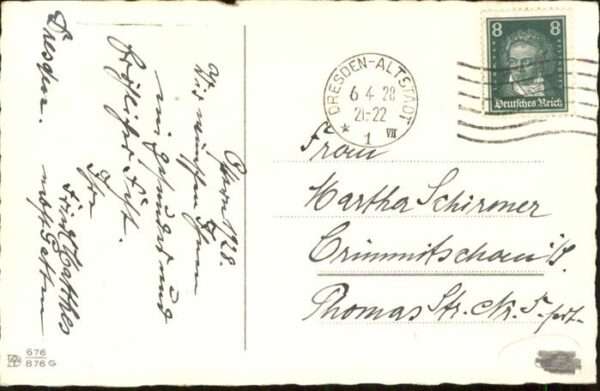 Ostern 1928.
Wir wünschen Ihnen
ein gesundes und
fröhliches Fest.
Ihr
Dresden.
8 8
Deutsches Reich
DRESDEN-ALTSTADT
6 4 28
21-22
* 1 VII
Frau
Martha Schirmer
Crimmitschau i/S.
Thomas Str. Nr. 5
676
876 G